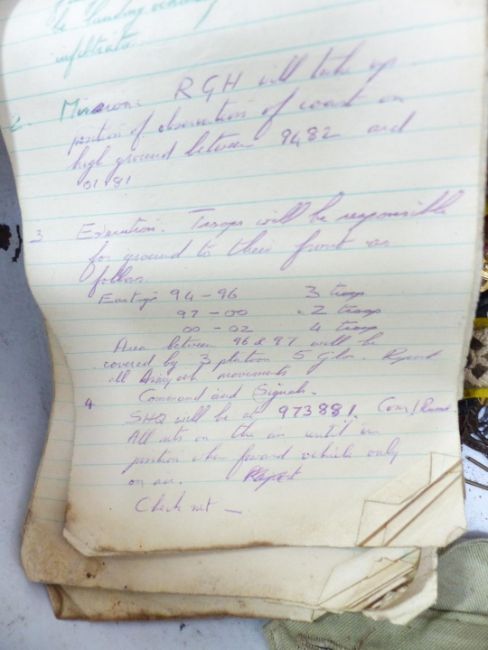 be landing
infiltrate
2. Mission. RGH will take up
position of observation of coast on
high ground between 9482 and
0181
3 Execution. Troops will be responsible
for ground to their front as
follows.
Eastings 94 - 96 3 troop
97 - 00 2 troop
00 - 02 4 troop
Area between 96 & 97 will be
covered by 3 platoon 5 Report
all movements
4 Command and Signals.
SHQ will be at 973881.
All sets on the air until in
position when forward vehicle only
on air. Report
Check net -